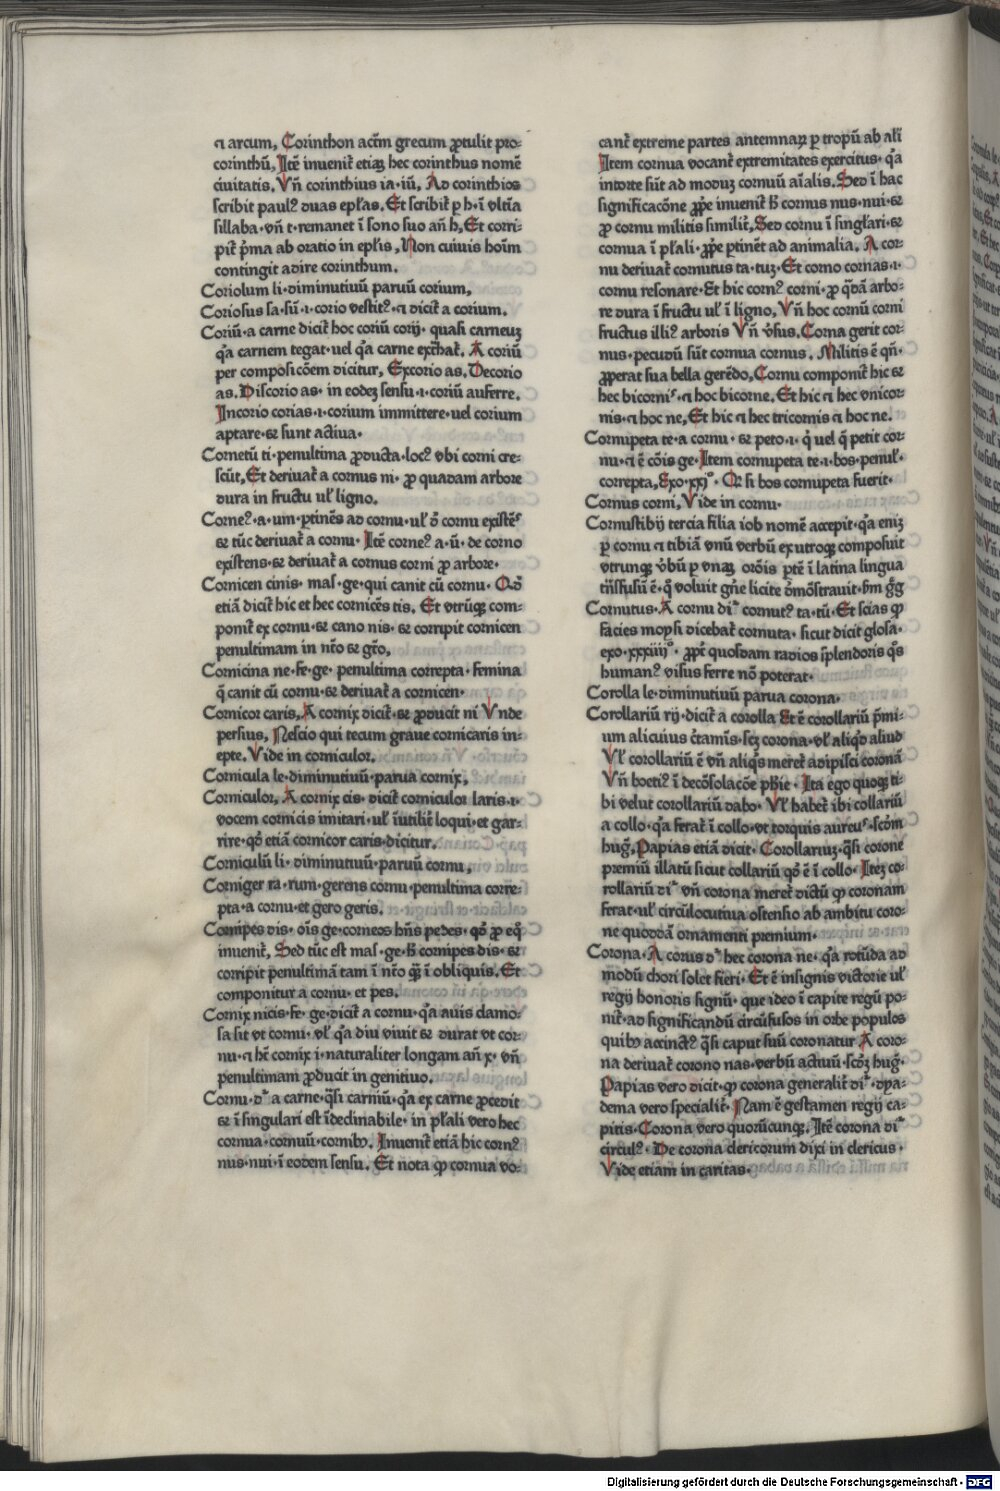 ⁊ arcum, Corinthon actm̄ grecum ꝓtulit pro⸗
corinthū, Itē inuenit̄ etiaꝫ hec corinthus nomē
ciuitatis, Vn̄ corinthius ia·iū, Ad corinthios
scribit paulꝰ duas epl̄as. Et scribit̄ p h·ī vltīa
sillaba·vn̄ t·remanet ī sono suo an̄ h, Et corri⸗
pit̄ p̄ma ab oratio in epl̄is, Non cuiuis hoīm
contingit adire corinthum.
Coriolum li·diminutiuū paruū corium,
Coriosus sa·sū·ı·corio vestitꝰ·⁊ dicit̄ a corium.
Coriū·a carne dicit̄ hoc coriū corij·quasi carneuꝫ
q̄a carnem tegat·uel q̄a carne ext̄hat̄. A coriū
per composic̄oēm dicitur, Excorio as. Decorio
as. Discorio as·in eodeꝫ sensu·ı·coriū auferre.
Incorio corias·ı·corium immittere·uel corium
aptare·⁊ sunt actiua·
Cornetū ti·penultima ꝓducta·locꝰ vbi corni cre⸗
scūt, Et deriuat̄ a cornus ni·ꝓ quadam arbore
dura in fructu ul̄ ligno.
Corneꝰ·a·um·ꝑtinēs ad cornu·ul̄ ō cornu existēˢ
⁊ tūc deriuat̄ a cornu·Itē corneꝰ a·ū·de corno
existens·⁊ deriuat̄ a cornus corni ꝓ arbore·
Cornicen cinis·mas̄·ge·qui canit cū cornu·Qō
etiā dicit̄ hic et hec cornicēs tis. Et vtrūqꝫ com⸗
ponit̄ ex cornu·⁊ cano nis·⁊ corripit cornicen
penultimam in nt̄o ⁊ gt̄o,
Cornicina ne·fe·ge·penultima correpta·femina
q̄ canit cū cornu·⁊ deriuat̄ a cornicen·
Cornicor caris, A cornix dicit̄·⁊ ꝓducit ni Vnde
persius, Nescio qui tecum graue cornicaris in⸗
epte. Vide in corniculor.
Cornicula le·diminutiuū·parua cornix,
Corniculor, A cornix cis·dicit̄ corniculor laris·ı·
vocem cornicis imitari·ul̄ īutilit̄ loqui·et gar⸗
rire·qō etiā cornicor caris·dicitur.
Corniculū li·diminutiuū·paruū cornu,
Corniger ra·rum·gerens cornu·penultima corre⸗
pta·a cornu·et gero geris.
Cornipes dis·oīs ge·corneos hn̄s pedes·qō ꝓ eq̄
inuenit̄, Sed tūc est mas̄·ge·h̄ cornipes dis·⁊
corripit penultimā tam ī nt̄o qꝫ̄ ī obliquis. Et
componitur a cornu·et pes.
Cornix nicis·fe·ge·dicit̄ a cornu·q̄a auis clamo⸗
sa sit vt cornu·vl̄ q̄a diu viuit ⁊ durat vt cor⸗
nu·⁊ ht̄ cornix i·naturaliter longam an̄ x·vn̄
penultimam ꝓducit in genitiuo.
Cornu·dʳ a carne·q̄si carniū·q̄a ex carne ꝓcedit
⁊ ī singulari est īdeclinabile·in pl̄ali vero hec
cornua·cornuū·cornibꝫ. Inuenit̄ etiā hic cornꝰ
nus·nui·ī eodem sensu. Et nota ꝙ cornua vo⸗
cant̄ extreme partes antemnaꝝ p tropū ab al̄i
Item cornua vocant̄ extremitates exercitus·q̄a
intorte sūt ad moduꝫ cornuū aīalis. Sed ī hac
significac̄one ꝓp̄e inuenit̄ h̄ cornus nus·nui·⁊
ꝓ cornu militis similit̄, Sed cornu ī singl̄ari·⁊
cornua ī pl̄ali·ꝓp̄e ptinēt ad animalia. A cor⸗
nu deriuat̄ cornutus ta·tuꝫ·Et corno cornas·ı·
cornu resonare·Et hic cornꝰ corni·ꝓ q̄dā arbo⸗
re dura ī fructu ul̄ ī ligno, Vn̄ hoc cornū corni
fructus illiꝰ arboris Vn̄ v̄sus. Corna gerit cor⸗
nus·pecudū sūt cornua cornus. Militis ē qn̄·
ꝓperat sua bella gerēdo, Cornu componit̄ hic ⁊
hec bicorniˢ·⁊ hoc bicorne. Et hic ⁊ hec vnicor⸗
nis·⁊ hoc ne, Et hic ⁊ hec tricornis ⁊ hoc ne.
Cornupeta te·a cornu·⁊ peto·ı·q̇ uel q̄ petit cor⸗
nu·⁊ ē cōis ge·Item cornupeta te·ı·bos·penul̄·
correpta, Exo·xxiº·Qr si bos cornupeta fuerit·
Cornus corni, Vide in cornu·
Cornustibij tercia filia iob nomē accepit·q̄a eniꝫ
p cornu ⁊ tibiā vnū verbū ex utroqꝫ composuit
vtrunqꝫ v̄bū p vnaꝫ orōis ptē ī latina lingua
tn̄sfusū ē·q̇ voluit gn̄e licite d̄mōstrauit·hm̄ gḡg
Cornutus·A cornu diʳ cornutꝰ ta·tū·Et scias ꝙ
facies moysi dicebat̄ cornuta·sicut dicit glosa·
exo·xxxiiijº·ꝓpt̄ quosdam radios splendoris q̄s
humanꝰ visus ferre nō poterat·
Corolla le·diminutiuū parua corona·
Corollariū rij·dicit̄ a corolla Et ē corollariū p̄mi⸗
um alicuius c̄tamīs·scꝫ corona·vl̄ aliqd̄ aliud
Vl̄ corollariū ē vn̄ aliq̄s meret̄ adipisci coronā
Vn̄ boetiꝰ ī decōsolac̄oe phi̅e·Ita ego quoqꝫ ti⸗
bi velut corollariū dabo·Vl̄ habet̄ ibi collariū
a collo·q̄a ferat̄ ī collo·vt torquis aureuˢ·scd̄m
hug̃, Papias etiā dicit·Corollariuꝫ·q̄si corone
premiū illatū sicut collariū qō ē ī collo·Iteꝫ co⸗
rollariū diʳ vn̄ corona meret̄ dictū ꝙ coronam
ferat·ul̄ circūlocutiua ostensio ab ambitu coro⸗
ne quoddā ornamenti premium·
Corona·A corus dʳ hec corona ne·q̄a rotūda ad
modū chori solet fieri·Et ē insignis victorie ul̄
regij honoris signū·que ideo ī capite regū po⸗
nit̄·ad significandū circūfusos in orbe populos
quibꝫ accinctꝰ q̄si caput suū coronatur A coro⸗
na deriuat̄ corono nas·verbū actiuū·scd̄ꝫ hug̃·
Papias vero dicit·ꝙ corona generalit̄ diʳ·dya⸗
dema vero specialit̄·Nam ē gestamen regij ca⸗
pitis·Corona vero quorūcunqꝫ. Itē corona diʳ
circulꝰ·De corona clericorum dixi in clericus·
Vide etiam in caritas·
Digitalisierung gefördert durch die Deutsche Forschungsgemeinschaft - DFG